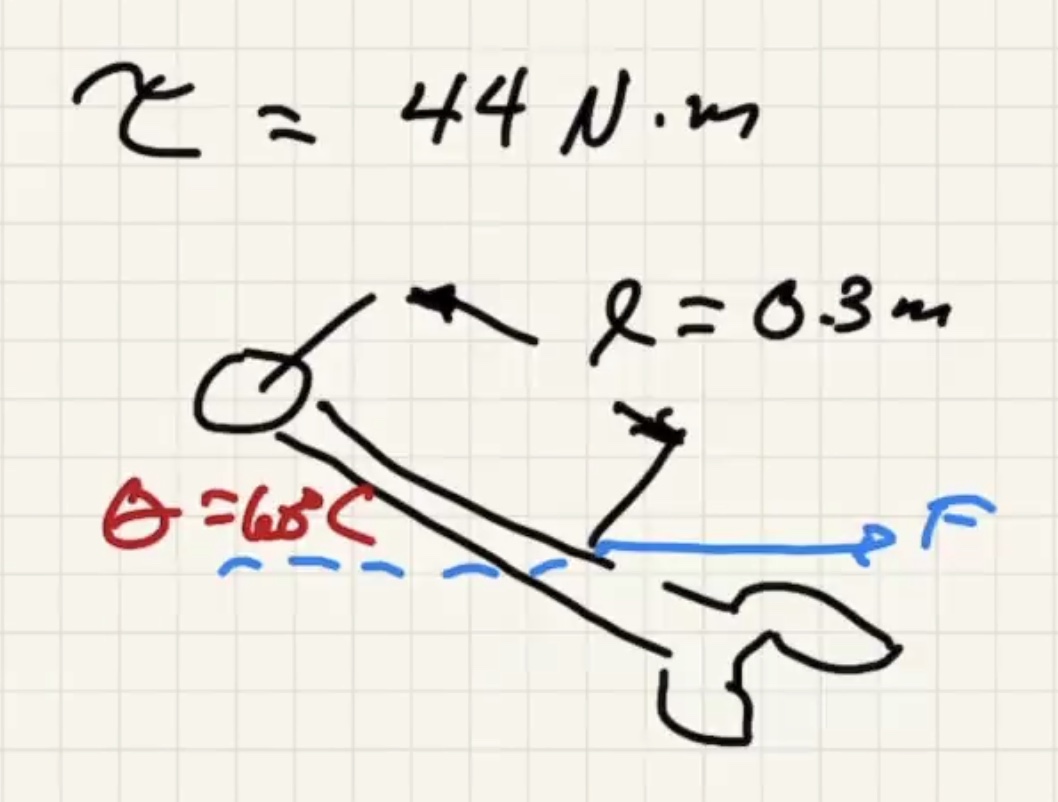 τ = 44 N·m
l = 0.3 m
θ = 60°C
F